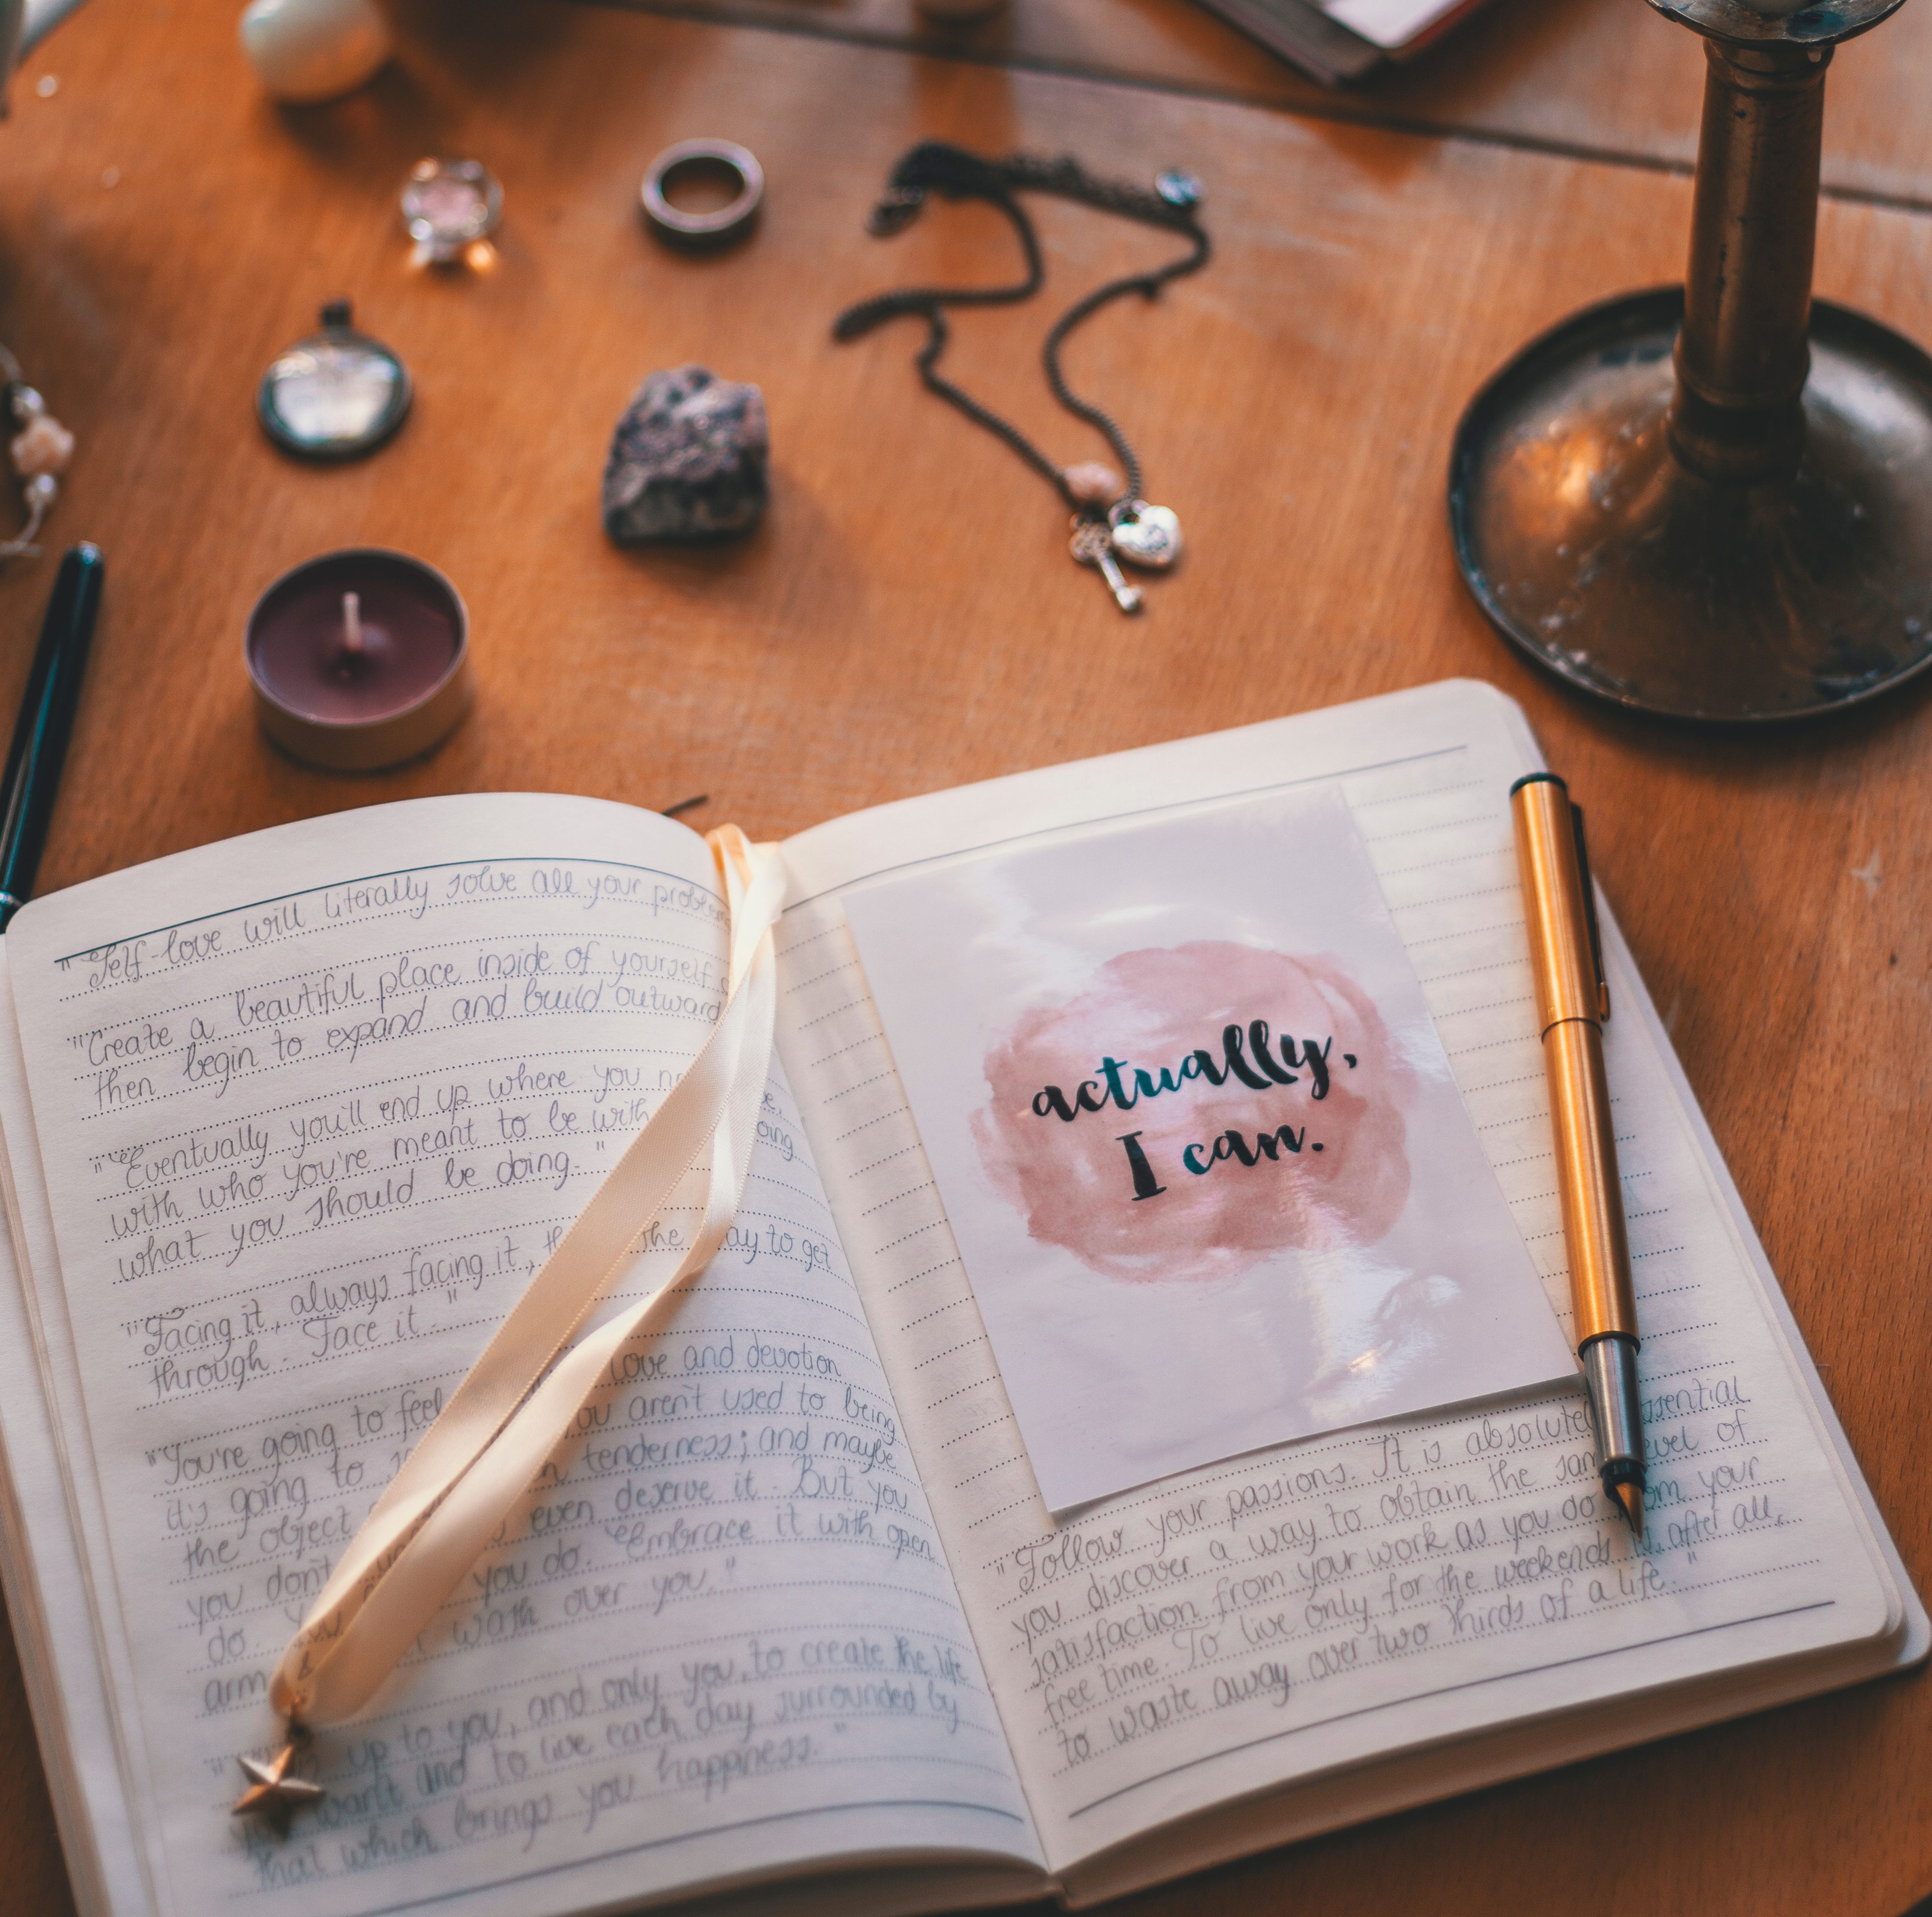 "Self-love will literally solve all your
"Create a beautiful place inside of yourself
then begin to expand and build outward
"Eventually you'll end up where you
with who you're meant to be with
what you should be doing."
"Facing it, always facing it, the ay to get
through. Face it."
"You're going to feel love and devotion
it's going to ou aren't used to being
the object tenderness; and maybe
you don't even deserve it. But you
do. you do. Embrace it with open
arm wash over you."
up to you, and only you, to create the life
want and to live each day surrounded by
that which brings you happiness."
actually,
I can.
"Follow your passions. It is absolutel ssential
you discover a way to obtain the sam evel of
satisfaction from your work as you do om your
free time. To live only for the weekends is, after all,
to waste away over two thirds of a life."